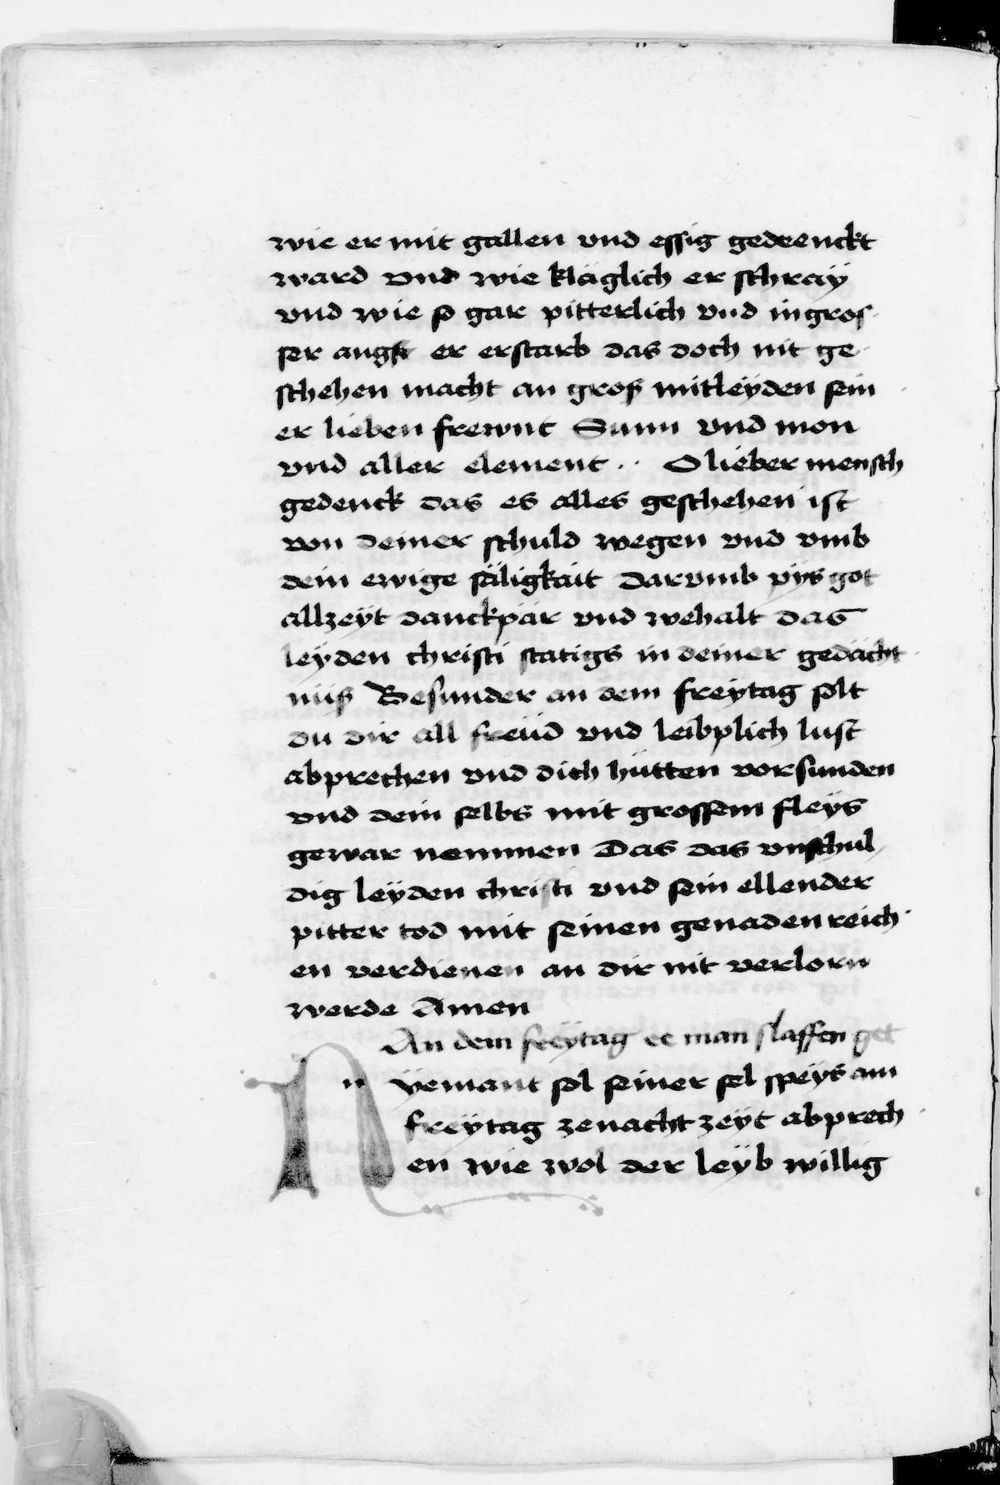 wie er mit gallen vnd essig gedrenckt
ward vnd wie kläglich er schray
vnd wie so gar pitterlich vnd in gros
ser angst er erstarb das doch nit ge
schehen macht an gros mitleyden sein
er lieben frewnt Sunn vnd mon
vnd aller element ·· O lieber mensch
gedenck das es alles geschehen ist
von deiner schuld wegen vnd vmb
dein ewige säligkait Darvmb pys got
allzeyt danckpär vnd wehalt das
leyden christi statigs in deiner gedächt
nüß Besunder an dem freytag solt
du dir all freüd vnd leibplich lust
abprechen vnd dich hütten vor sunden
vnd dein selbs mit grossem fleys
gewar nemmen Das das vnschul
dig leyden christi vnd sein ellender
pitter tod mit seinen genaden reich
en verdienen an dir nit verlorn
werde Amen
An dem freytag ee man slaffen get
N yemant sol seiner sel speys am
freytag ze nacht zeyt abprech
en wie wol der leyb willig